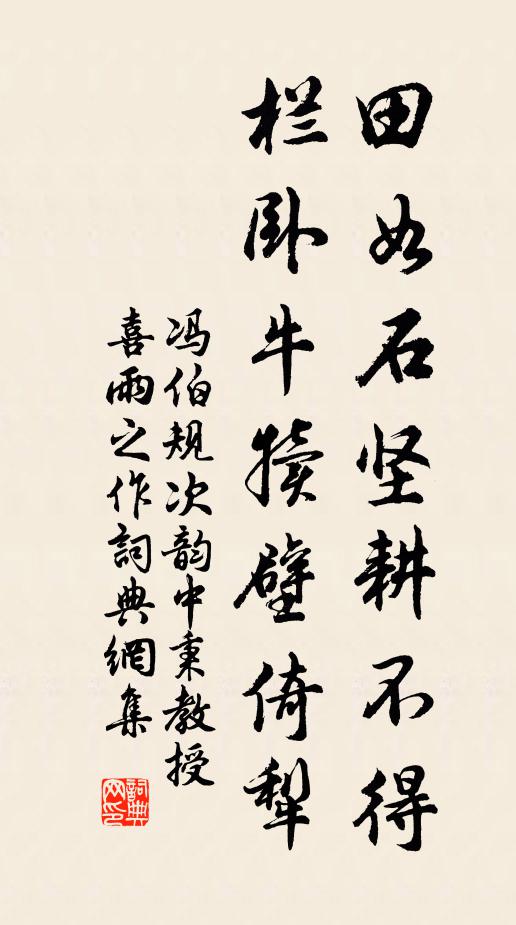 田如石坚耕不得
栏卧牛犊壁倚犁
冯伯规次韵中秉教授
喜雨之作詞典網集
詞典
网印